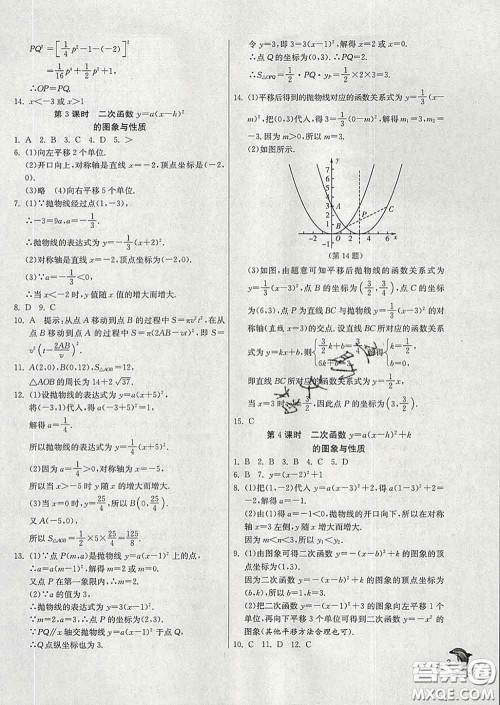 PQ²=[1/4p²-1-(-2)]²
=1/16p⁴+1/2p²+1,
∴OP=PQ.
14. x<-3或x>-2
第3课时 二次函数y=a(x-h)²
的图象与性质
1. A 2. B 3. C 4. D 5. >
6. (1)向左平移2个单位.
(2)开口向上,对称轴是直线x=-2,顶点坐标是(-2,0).
(3)略 (4)向右平移5个单位.
7. (1)∵抛物线经过点(1,-3),
∴-3=9a,∴a=-1/3,
∴抛物线的表达式为y=-1/3(x+2)².
(2)对称轴为直线x=-2,顶点坐标为(-2,0).
(3)∵a=-1/3<0,
∴当x<-2时,y值随x值的增大而增大.
8. D 9. C
10. A 提示:从点A移动到点B的过程中S=πv²t²,在从
点B移动到点A的过程中S=π(2AB-vt)²,即S=
πv²(t-2AB/v)².
11. A(2,0),B(0,12),S△AOB=12,
△AOB的周长为14+2√37.
12. (1)因为抛物线的对称轴为x=-5,所以h=-5.
将(-3,1)代入,得1=a(-3+5)²,
解得a=1/4.
所以抛物线的表达式为y=1/4(x+5)².
(2)因为a=1/4>0,对称轴为x=-5,
所以当x>-5时y随x的增大而增大.
(3)当x=0时,y=25/4,所以B(0,25/4).
又A(-5,0),
所以S△AOB=1/2×5×25/4=125/8.
13. (1)∵点P(m,a)是抛物线y=a(x-1)²上的点,
∴a=a(m-1)²,解得m=2或m=0.
又点P在第一象限内,∴m=2.
(2)∵a的值为3,
∴抛物线的表达式为y=3(x-1)².
∵m=2,a=3,∴点P的坐标为(2,3).
∵PQ∥x轴交抛物线y=a(x-1)²于点Q,
∴Q点纵坐标也为3.
令y=3,即3=3(x-1)²,解得x=2或x=0.
∴点Q的坐标为(0,3).
∴PQ=2,
∴S△OPQ=1/2·PQ·yP=1/2×2×3=3.
14. (1)平移后得到的抛物线对应的函数关系式为
y=a(x-3)²,把(0,3)代入,得3=a(0-3)²,解得
a=1/3,所以y=1/3(x-3)².
(2)如图所示.
(第14题)
(3)如图,由题意可知平移后抛物线的函数关系式为
y=1/3(x-3)²,点B的坐标为(3/2,3/4),点C的坐标
为(6,3),点P为直线BC与抛物线y=1/3(x-3)²的对
称轴(直线x=3)的交点.设直线BC所对应的函数关
系式为y=kx+b,则
即直线BC所对应的函数关系式为y=1/2x,
当x=3时,y=3/2,因此点P的坐标为(3,3/2).
第4课时 二次函数y=a(x-h)²+k
的图象与性质
1. B 2. B 3. B 4. C 5. D
8. (1)把(1,-2)代入y=a(x-3)²+2,得a(1-3)²+2=
-2,解得a=-1.
(2)因为a=-1<0,抛物线的开口向下,所以在对称轴
x=3左侧,y随x的增大而增大.
因为m<n<3,所以y₁<y₂.
9. (1)由图象可得二次函数y=-(x-b)²+k的图象的顶点
坐标为(1,3).
因为二次函数y=-(x-b)²+k的图象的顶点坐标为
(b,k),所以b=1,k=3.
(2)把二次函数y=-(x-b)²+k的图象向左平移1个
单位,再向下平移3个单位即可得到二次函数y=-x²
的图象(其他平移方法合理也可).
10. C 11. D 12. C
答案圈
MXQE.COM